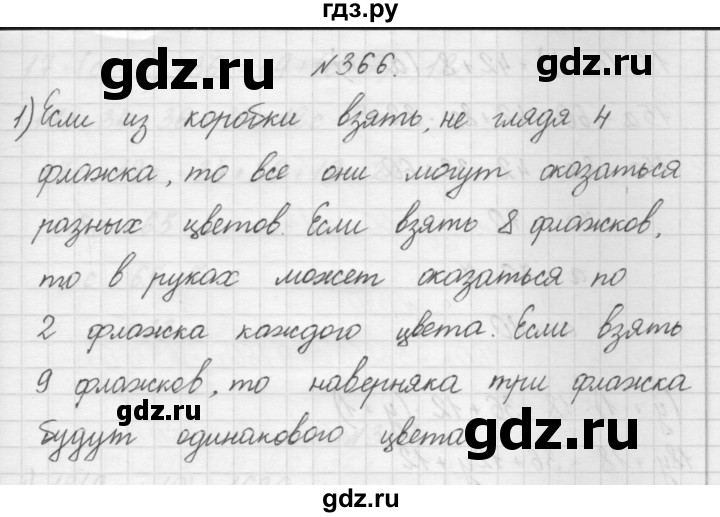 гдз.ру
gdz.ru
№366.
gdz.ru
1) Если из коробки взять, не глядя 4
флажка, то все они могут оказаться
разных цветов. Если взять 8 флажков,
то в руках может оказаться по
2 флажка каждого цвета. Если взять
9 флажков, то наверняка три флажка
gdz.ru
будут одинакового цвета
gdz.ru
gdz.ru